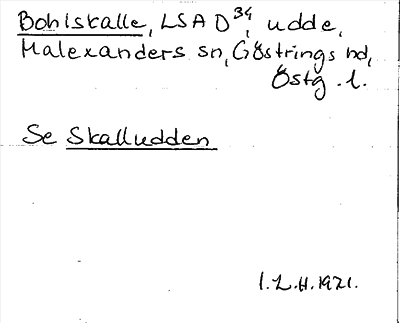 Bohlskalle, LSA D34, udde,
Malexanders sn, Göstrings hd,
Östg. l.
Se Skalludden
I.L.H. 1971.